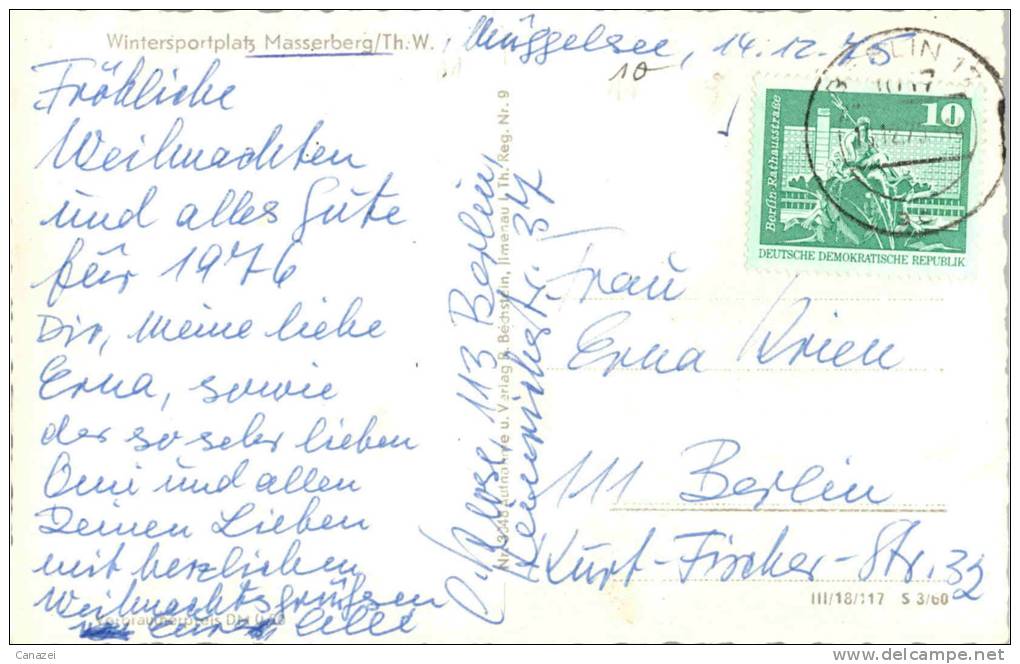 Wintersportplatz Masserberg/Th.W.
Müggelsee, 14.12.75
10
Fröhliche
Weihnachten
und alles Gute
für 1976
Dir, meine liebe
Erna, sowie
der so sehr lieben
Omi und allen
Deinen Lieben
mit herzlichen
Weihnachtsgrüßen
Verbraucherpreis DM
Nr. Aufnahme u. Verlag R. Bechstein, Jlmenau i. Th. Reg. Nr. 9
113 Berlin
37
BERLIN
10
Berlin-Rathausstraße
DEUTSCHE DEMOKRATISCHE REPUBLIK
Frau
Erna Krien
111 Berlin
Kurt-Fischer-Str. 32
III/18/117 S 3/60
Canazei
www.delcampe.net